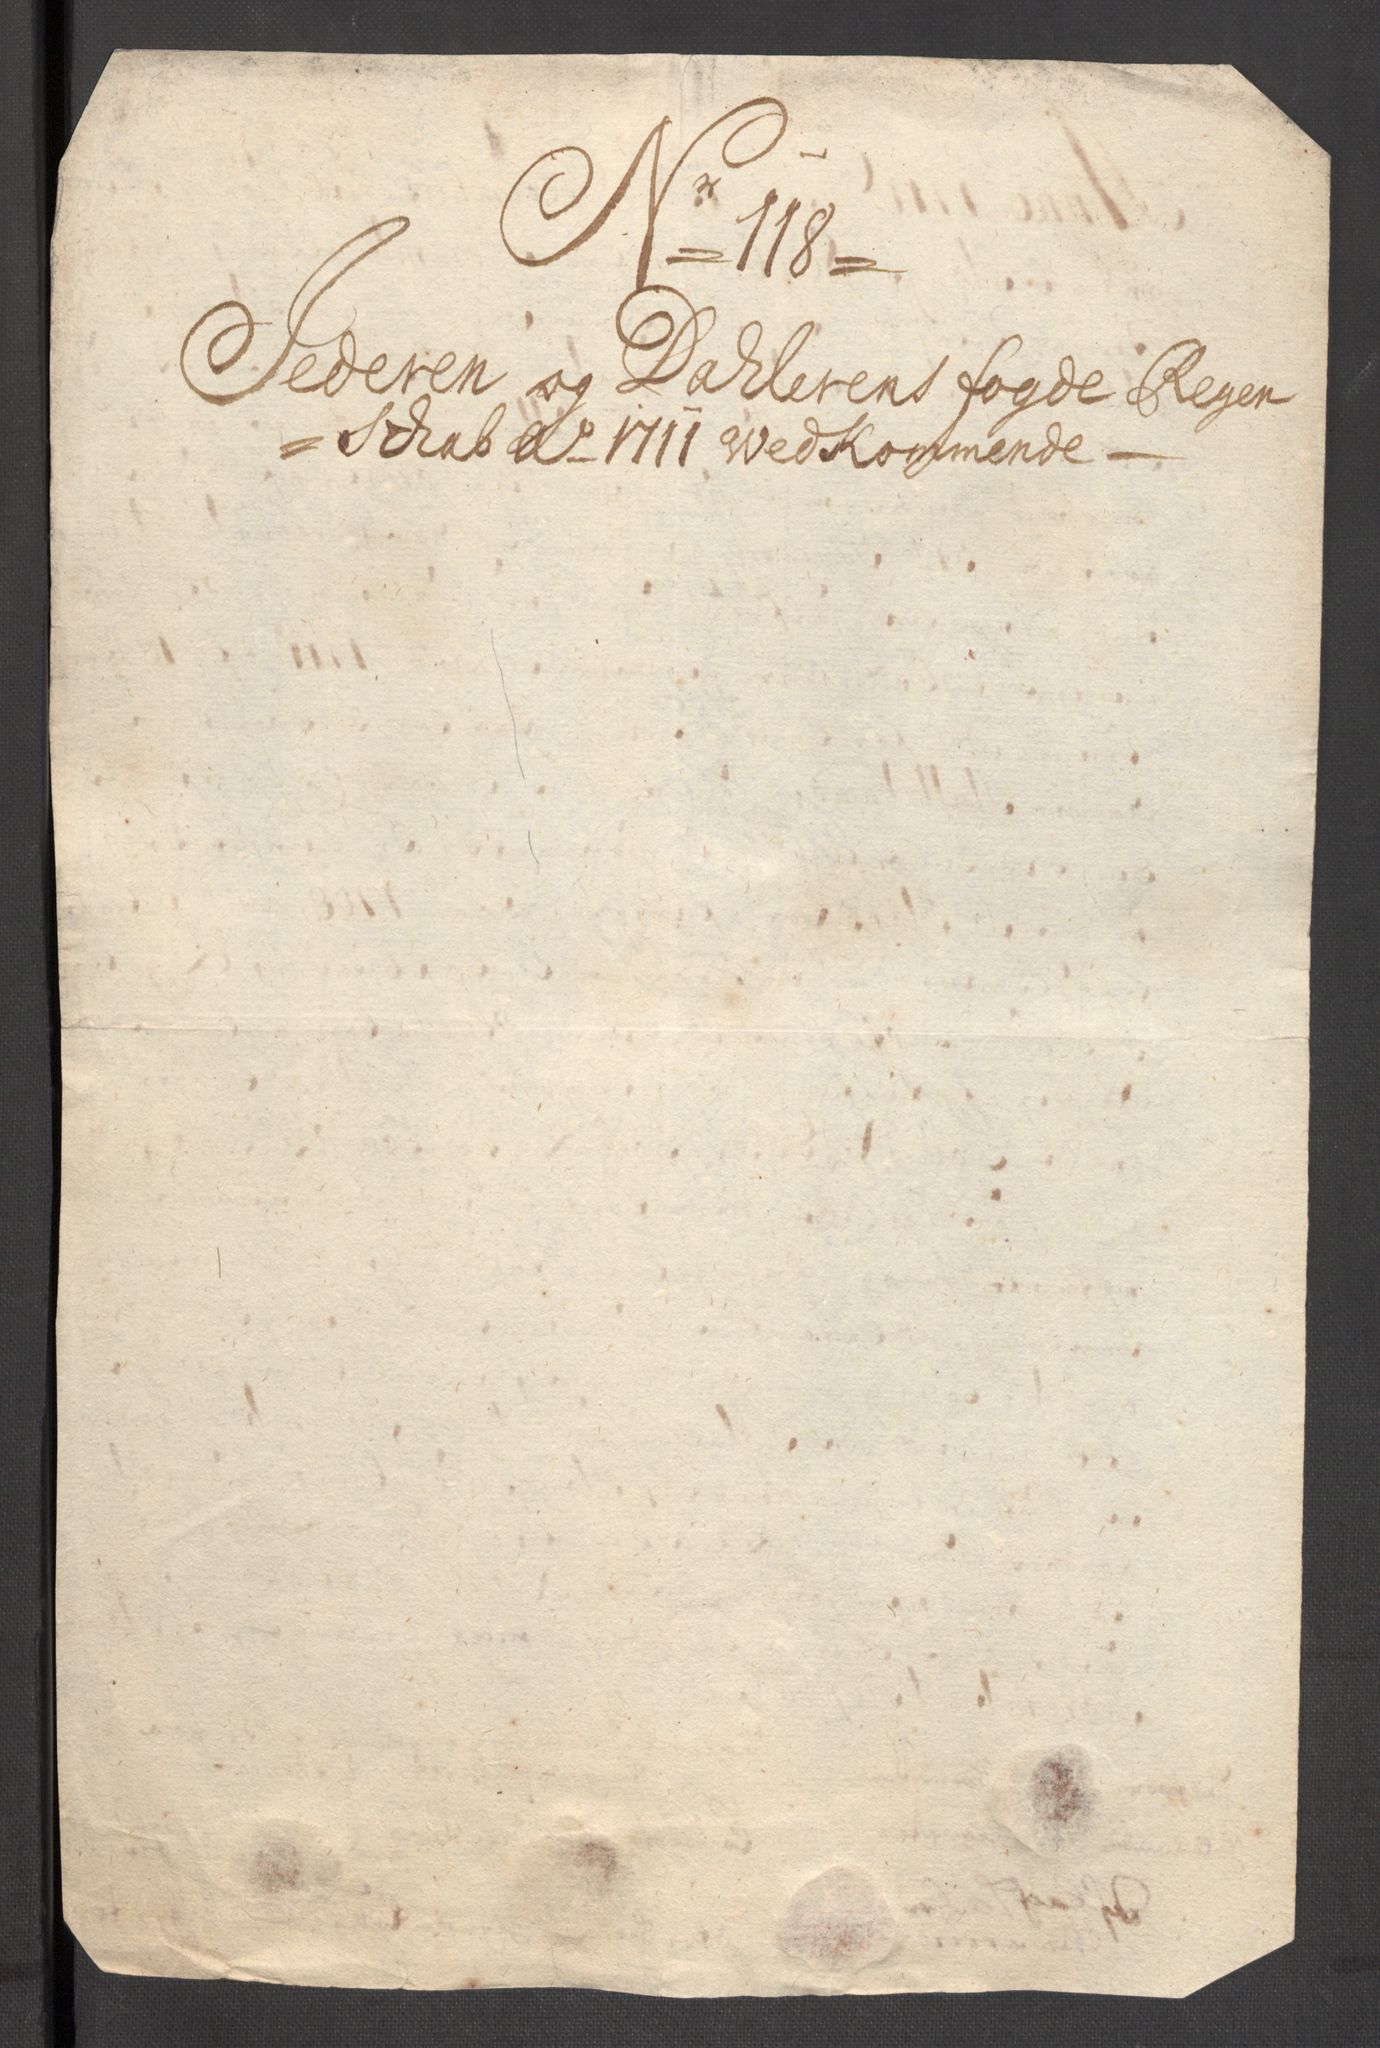 Nr
= 118 =
Jederen og Dahlerens fogde Regen
= schab Ao 1711 WedKommende —